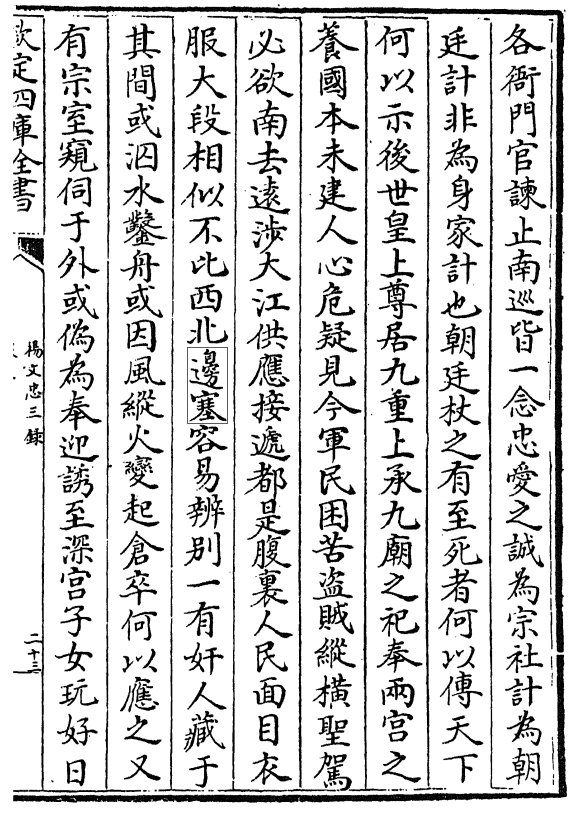 各衙門官諫止南巡皆一念忠愛之誠為宗社計為朝
廷計非為身家計也朝廷杖之有至死者何以傳天下
何以示後世皇上尊居九重上承九廟之祀奉兩宫之
養國本未建人心危疑見今軍民困苦盜賊縱橫聖駕
必欲南去遠涉大江供應接遞都是腹裏人民面目衣
服大段相似不比西北邊塞容易辨别一有奸人藏于
其間或泅水鑿舟或因風縱火變起倉卒何以應之又
有宗室窺伺于外或偽為奉迎誘至深宫子女玩好日
欽定四庫全書
楊文忠三録
二十三